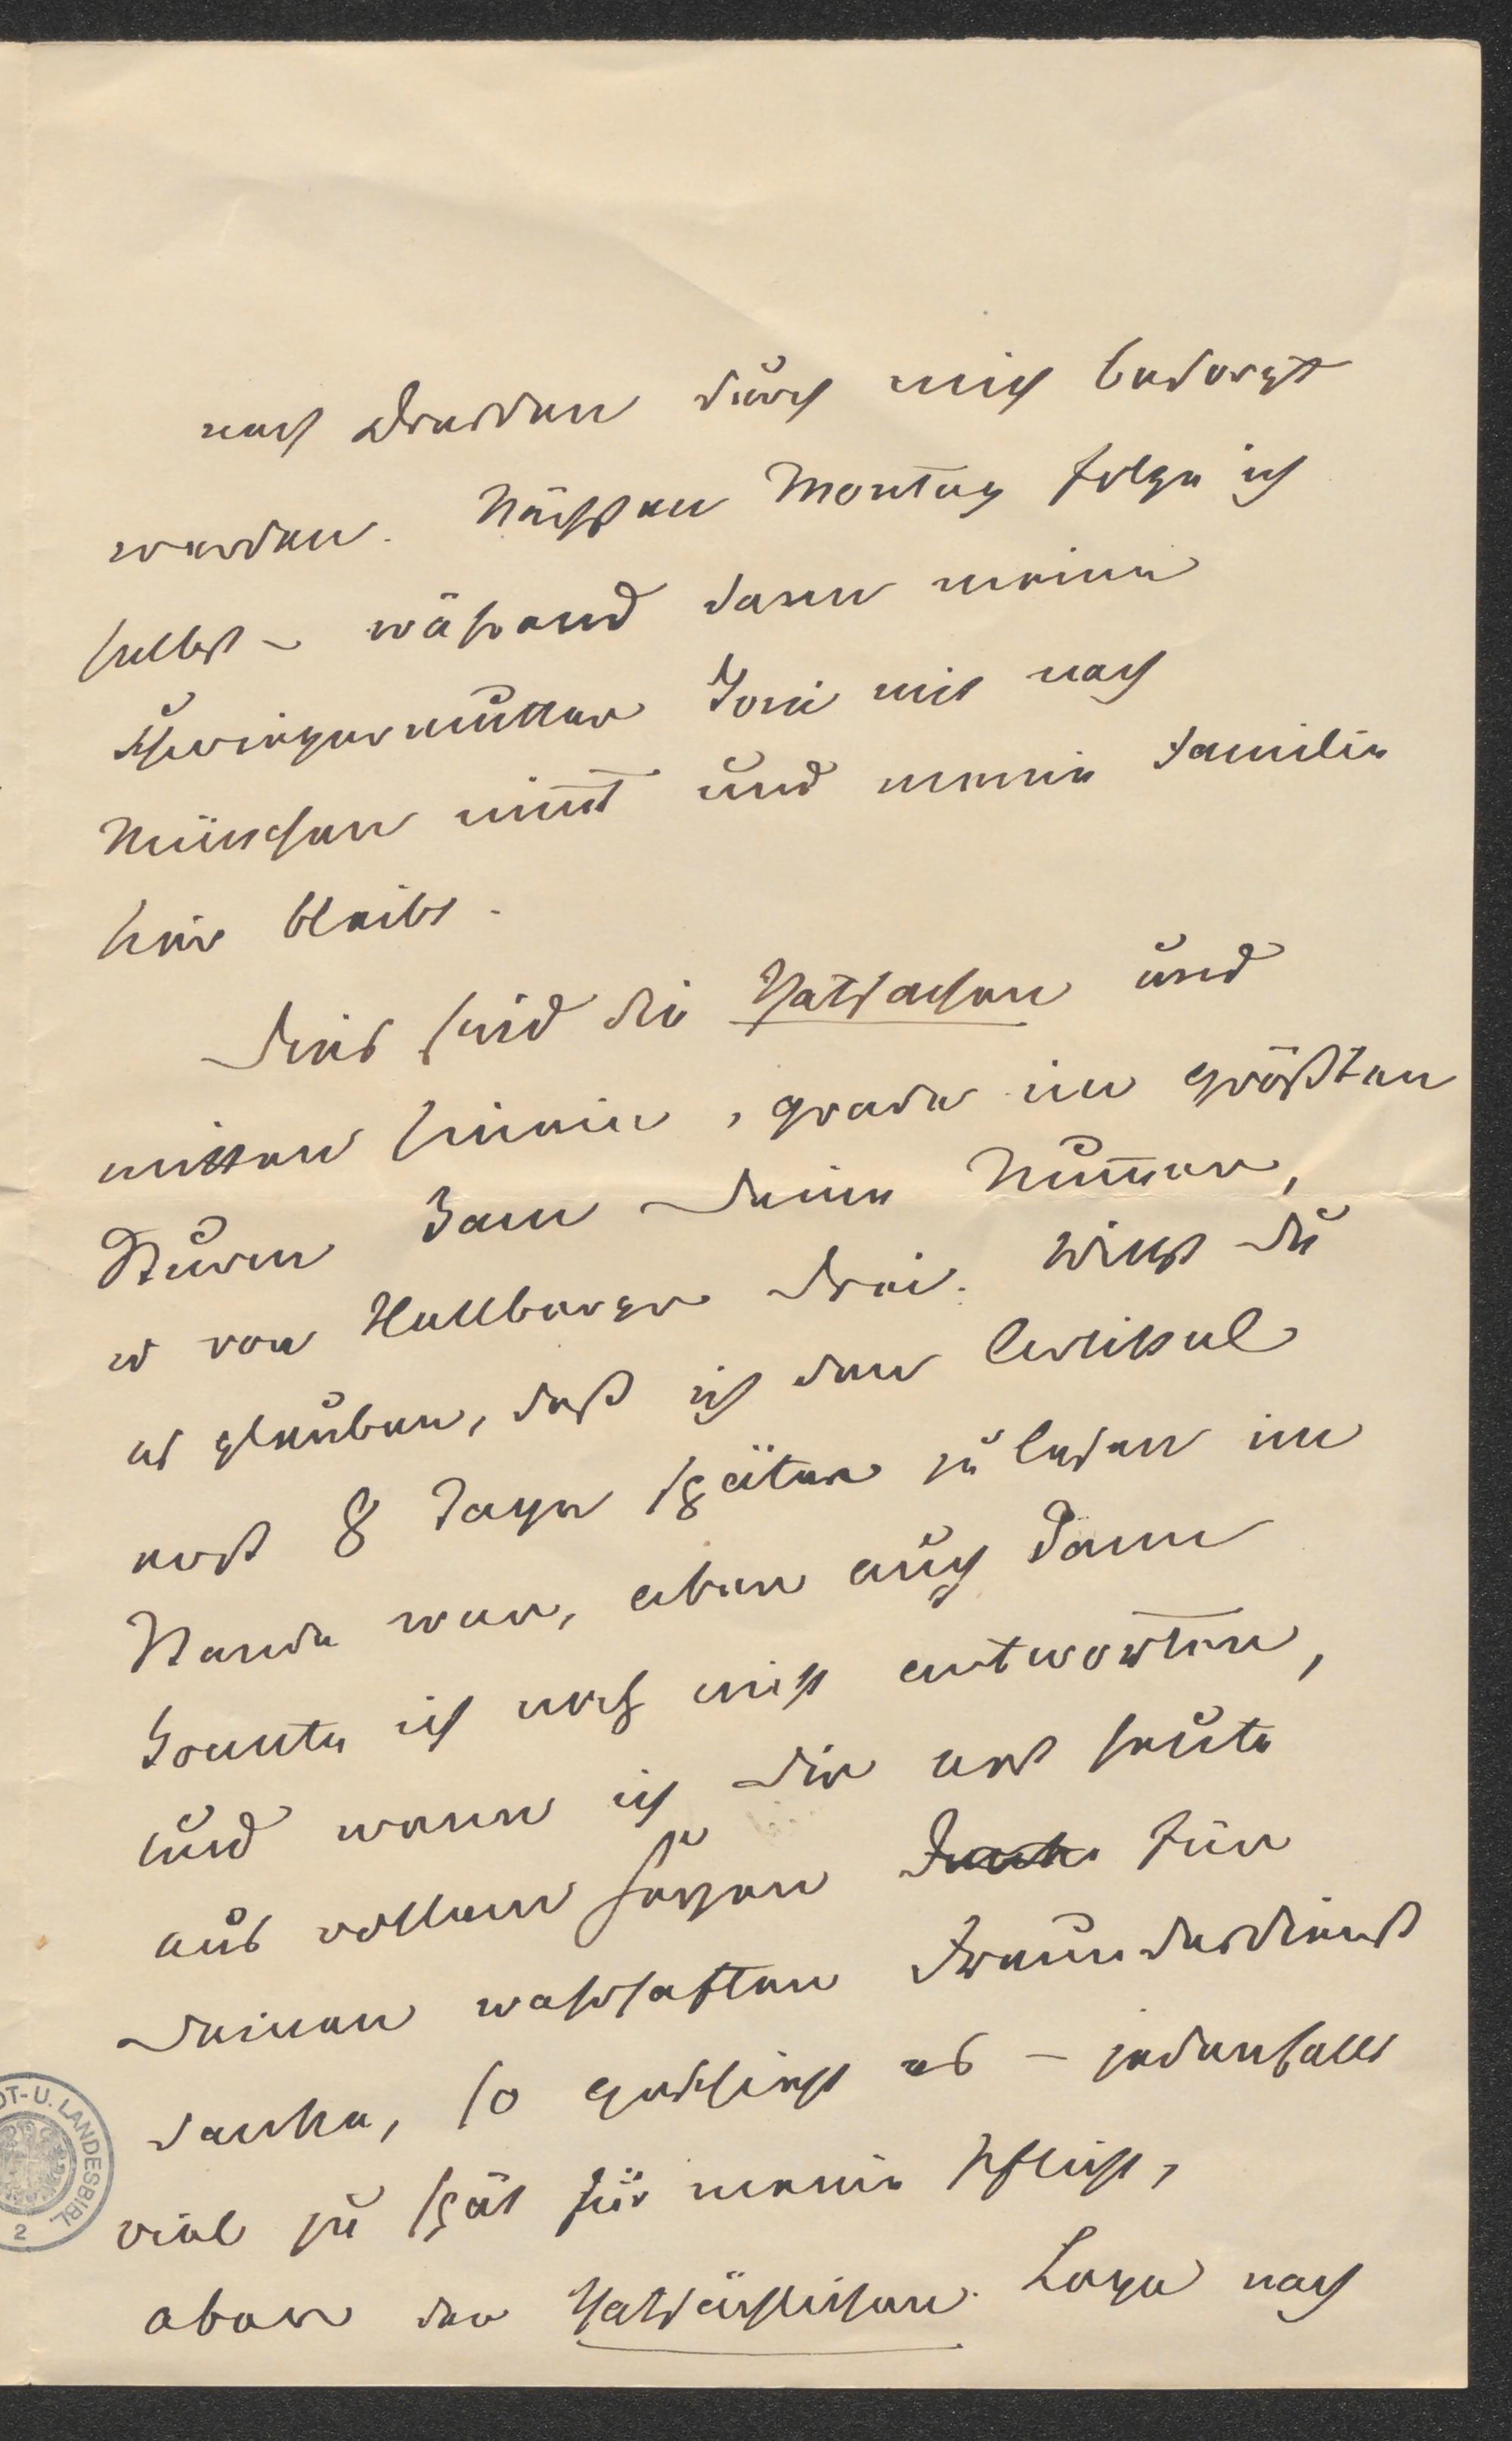 nach Dresden durch mich besorgt
werden. Nächsten Montag folge ich
selbst – während dann meine
Schwiegermutter Toni mit nach
München nim̅t und meine Familie
hier bleibt.
Dies sind die Thatsachen und
mitten hinein, grade im größten
Sturm kam Deine Num̅er,
d von Hallberger drei. Willst Du
es glauben, daß ich den Artikel
erst 8 Tage später zu lesen im
Stande war, aber auch dann
konnte ich noch nicht antworten,
und wenn ich Dir erst heute
aus vollem Herzen für
Deinen wahrhaften Freundesdienst
danke, so geschieht es – jedenfalls
viel zu spät für meine Pflicht,
aber der thatsächlichen Lage nach
DT- U. LANDESBIBL
2